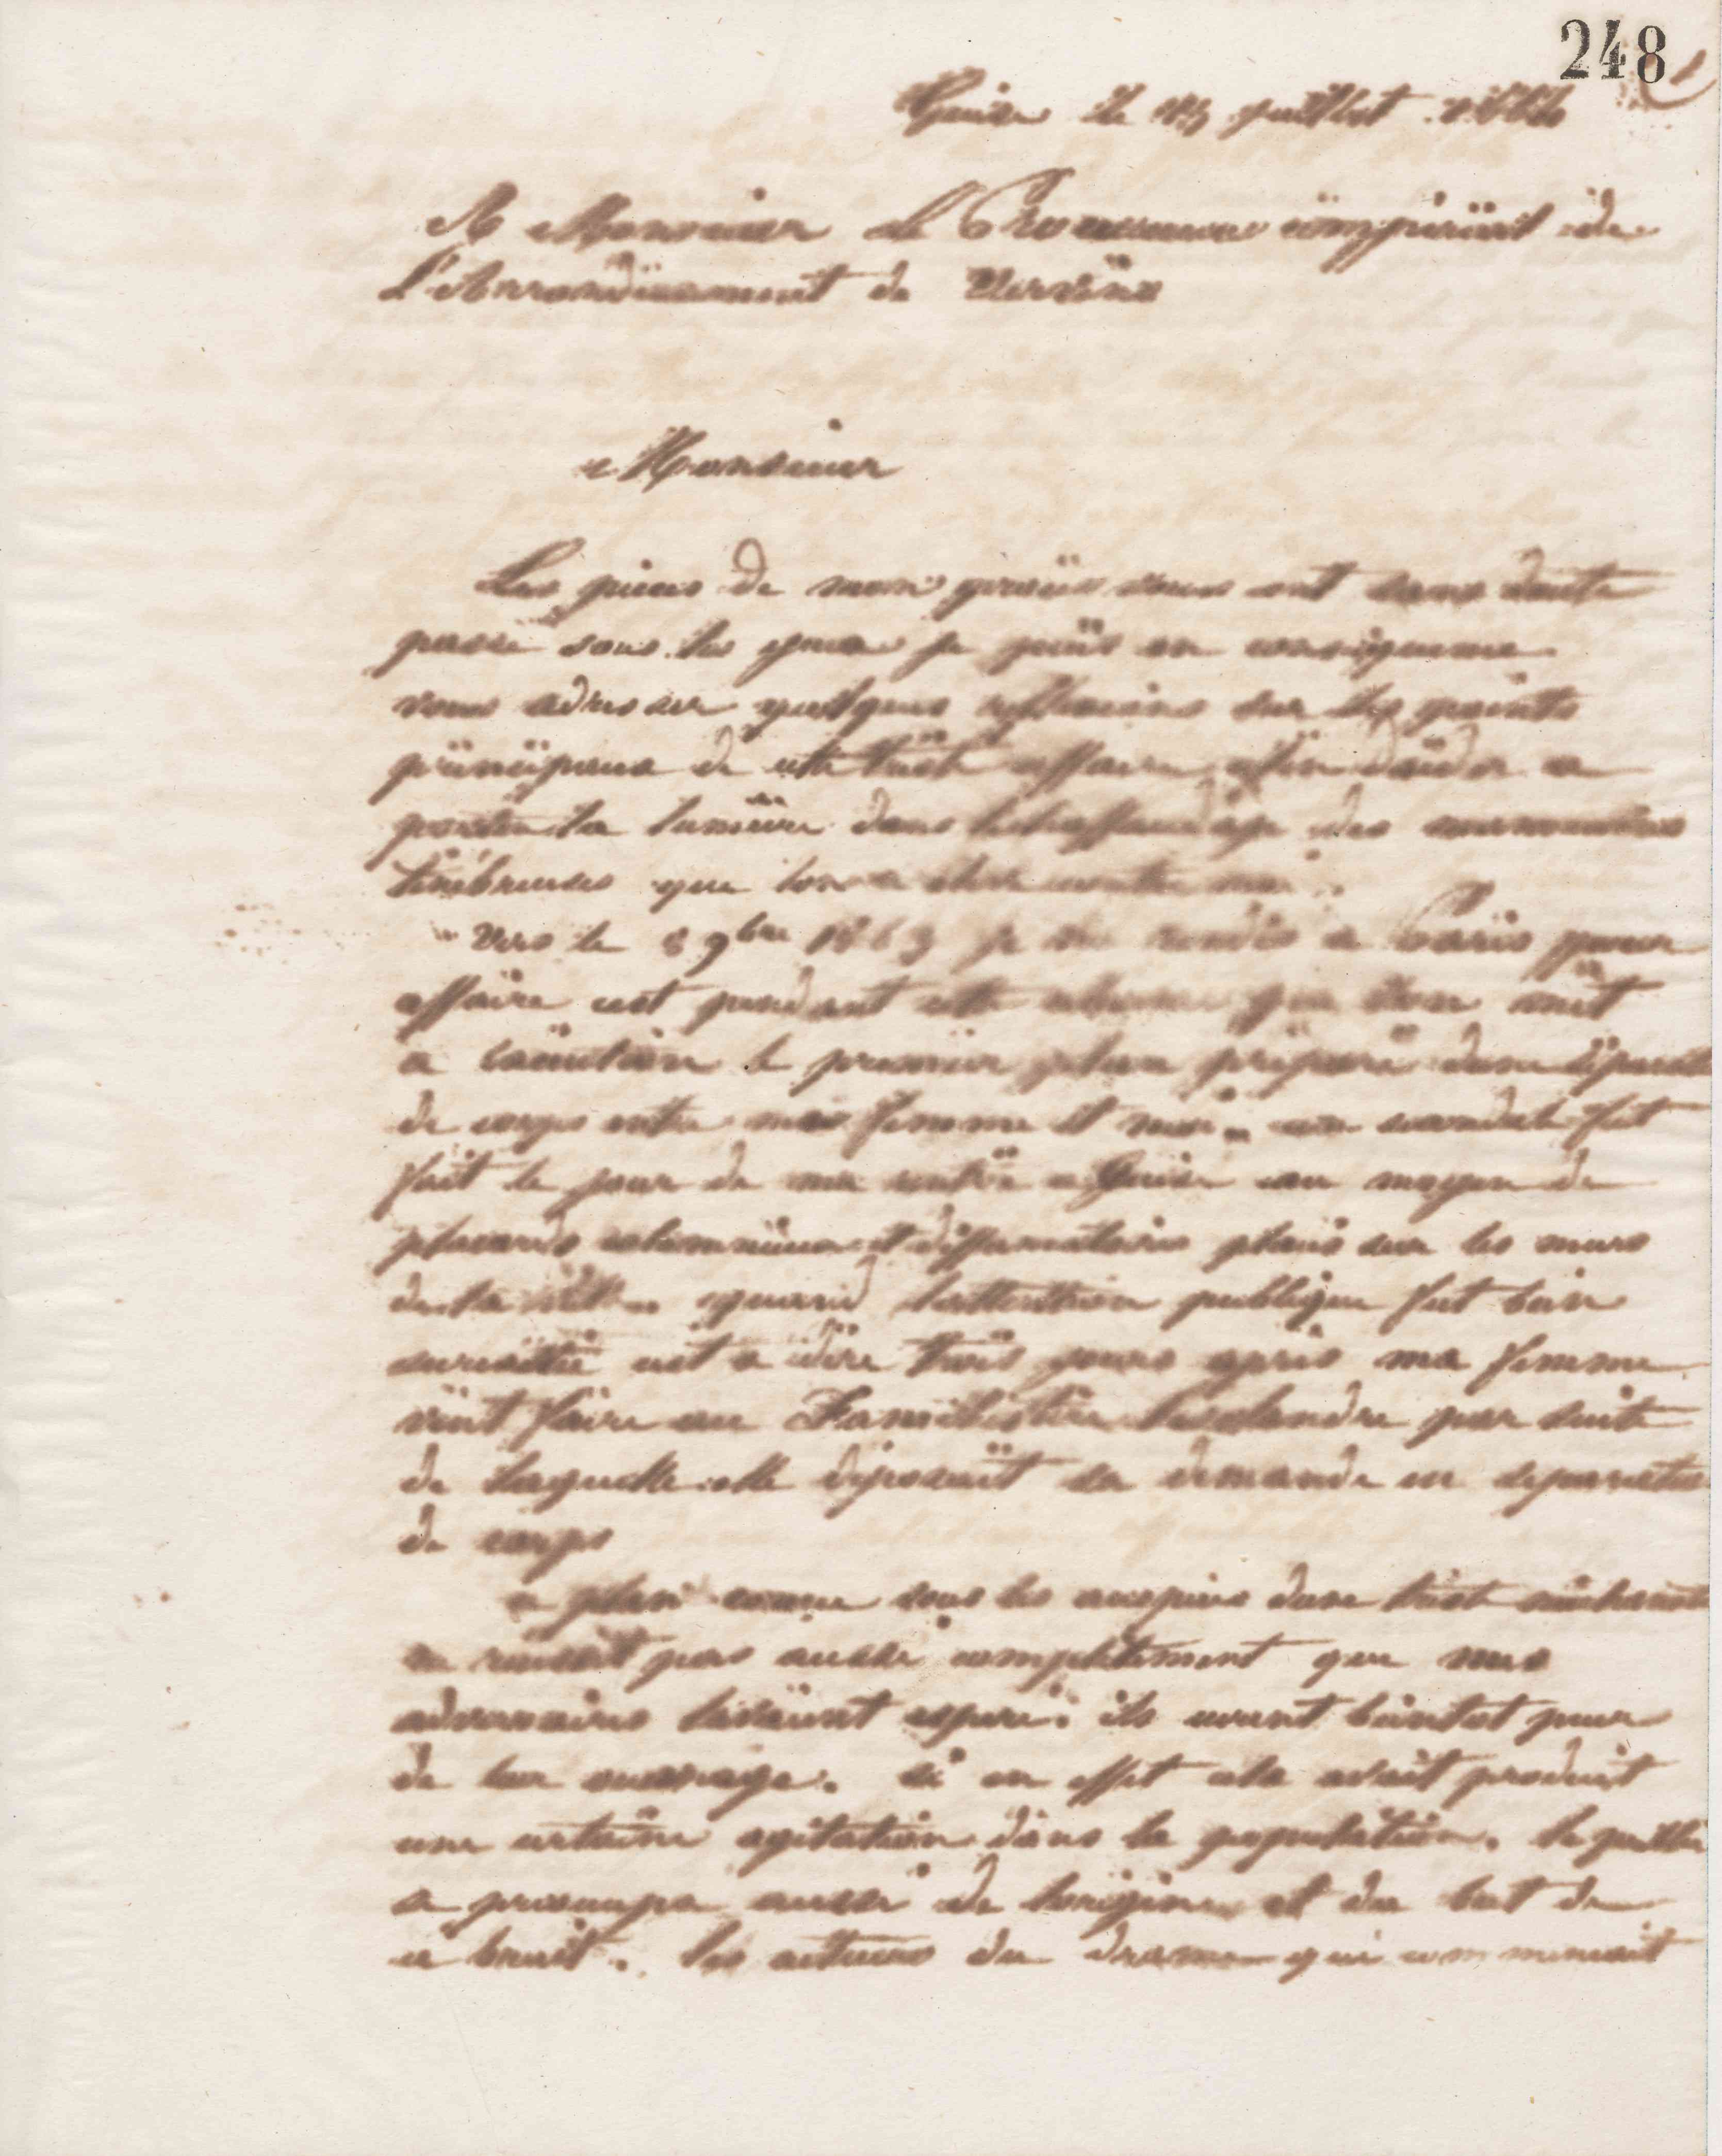 248
Guise le juillet
A Monsieur Le Procureur impérial de
L'Arrondissement de Vervins
Monsieur
Les pièces de mon procès vous ont sans doute
passé sous les yeux je puis en conséquence
vous adresser quelques reflexions sur les points
principaux de cette triste affaire afin daider a
porter la lumière dans lechaffaudage des manœuvres
ténébreuses que lon a contre moi.
Vers le 8 9bre 1863 je me rendis a Paris pour
affaire cest pendant cette absence que lon mit
a exécution le premier plan préparé dune
de corps entre ma femme et moi. un scandale fut
fait le jour de ma rentrée a Guise au moyen de
placards calomnieux et diffamatoires placés sur les murs
de la ville. quand lattention publique fut bien
surexcitée cest a dire trois jours après ma femme
vint faire au Familistère lesclandre par suite
de laquelle elle déposait sa demande en separation
de corps
ce plan conçu sous les auspices dune triste méchanceté
ne réussit pas aussi complètement que mes
adversaires lavaient espéré. ils eurent bientot peur
de leur ouvrage. si en effet cela avait produit
une certaine agitation dans la population. le public
se préoccupa aussi de lorigine et du but de
ce bruit. les acteurs du drame qui commencait